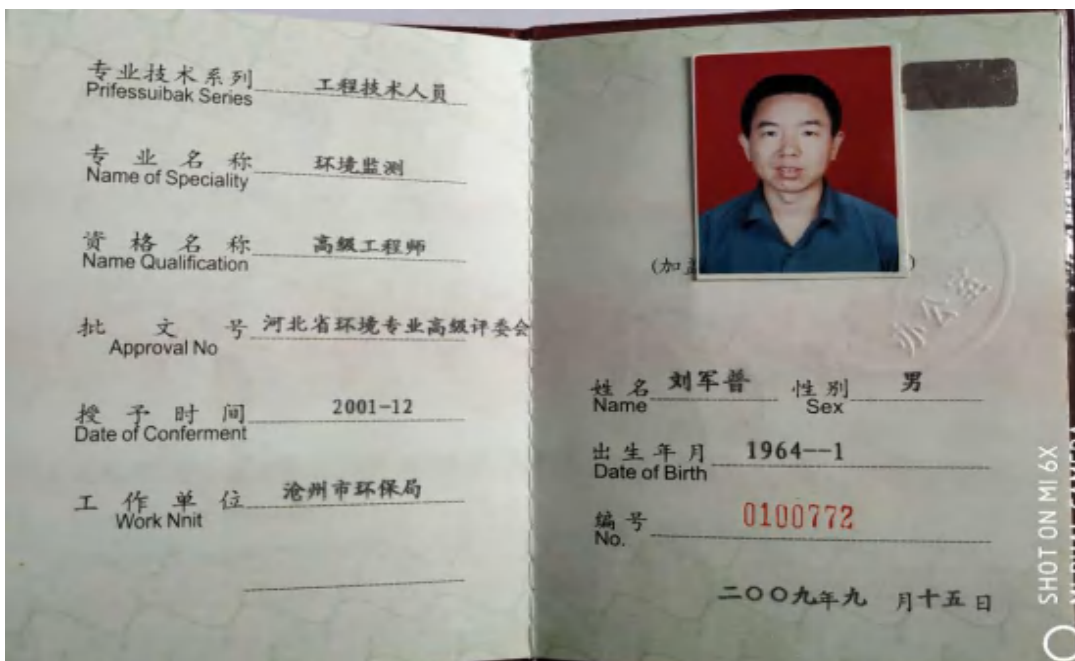 专业技术系列 工程技术人员
Prifessuibak Series
专业名称 环境监测
Name of Speciality
资格名称 高级工程师
Name Qualification
批文号 河北省环境专业高级评委会
Approval No
授予时间 2001-12
Date of Conferment
工作单位 沧州市环保局
Work Nnit
(加 )
办公室
姓名 刘军普 性别 男
Name Sex
出生年月 1964--1
Date of Birth
编号 0100772
No.
二〇〇九年九 月十五日
SHOT ON MI 6X
MI DUAL CAMERA